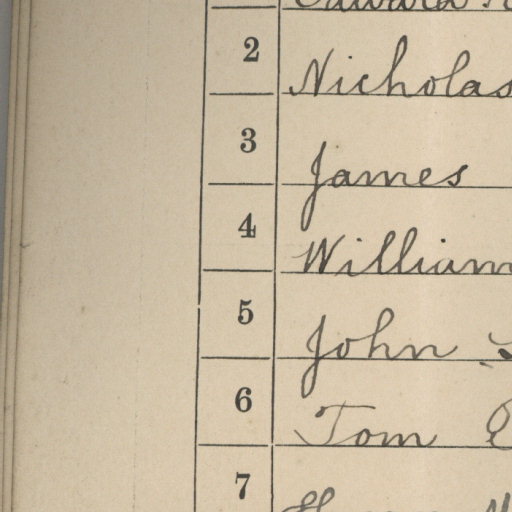 Edward
2 Nicholas
3 James
4 William
5 John
6 Tom
7